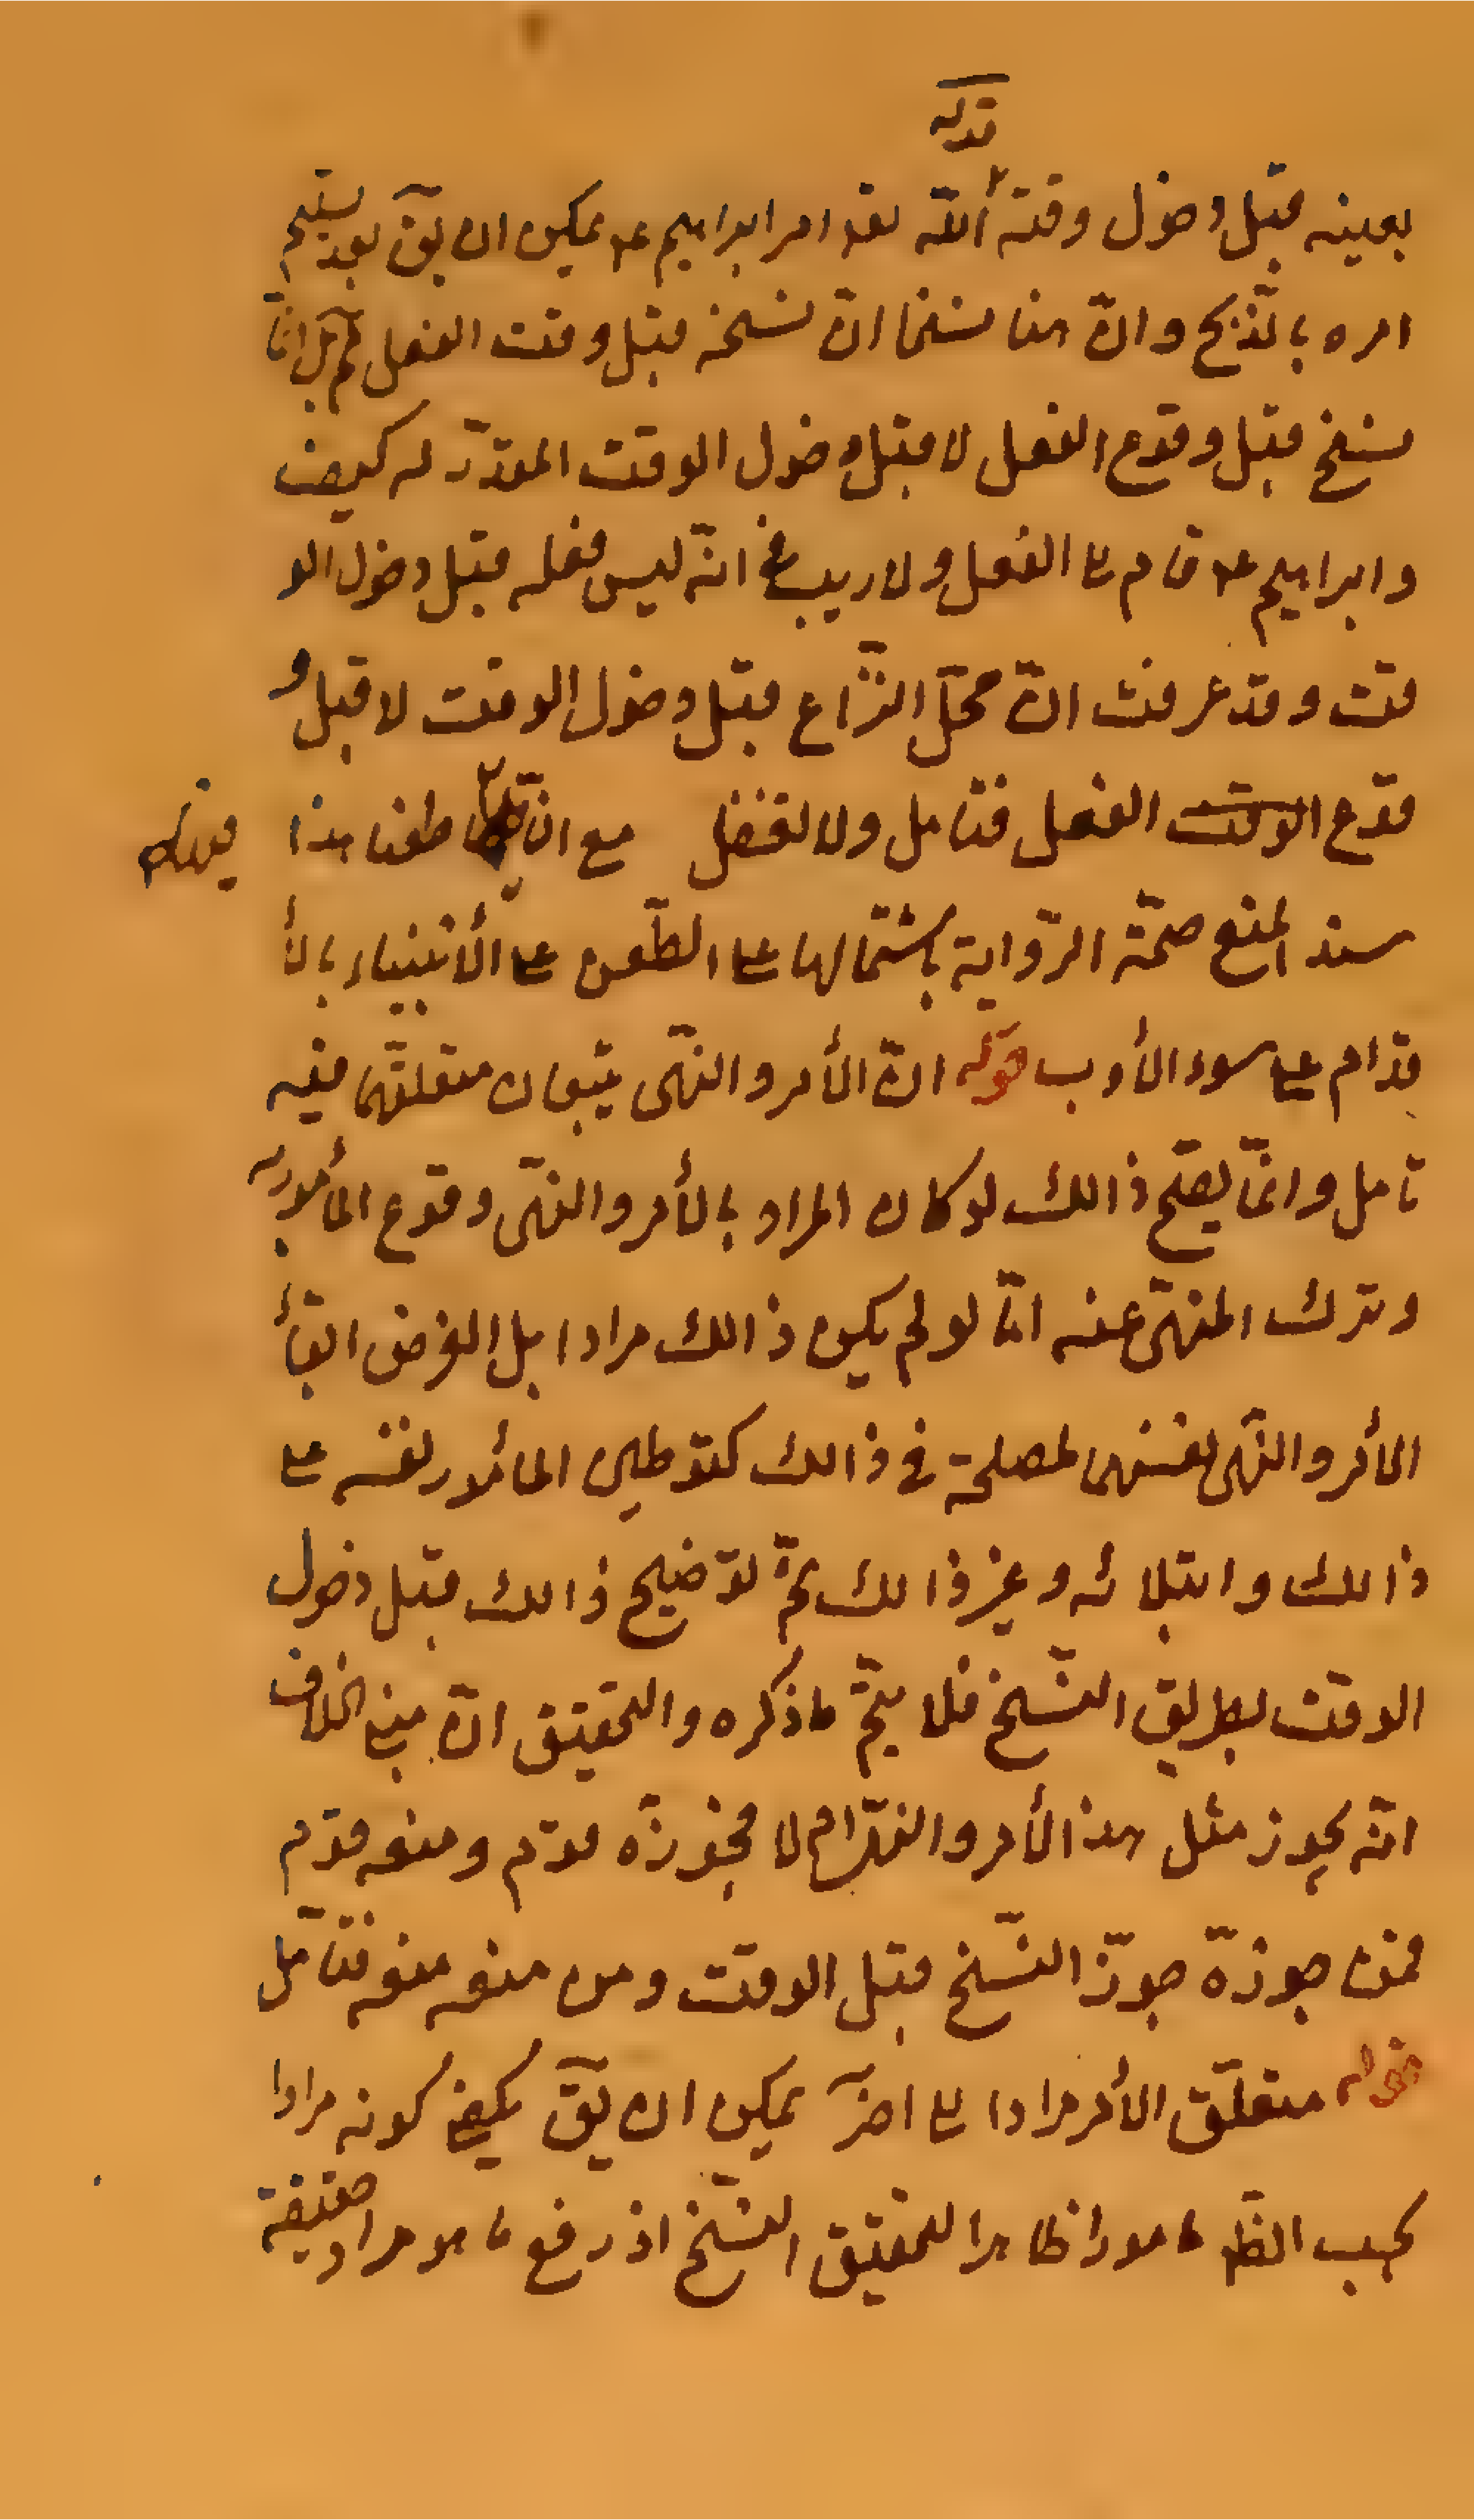 قوله
بعينه قبل دخول وقته أنّه تعه امر ابراهيم عم يمكن ان يقٓ بعد تسليم
امره بالذّبح وانّ هنا نسخا انّ نسخه قبل وقت الفعل ثم بل انّما
نسخ قبل وقوع الفعل لا قبل دخول الوقت المقدّر له كيف
وابراهيم عم قام على الفعل ولا ريب في انّه ليس فعله قبل دخول الو
قت وقد عرفت انّ محّل النّزاع قبل دخول الوقت لا قبل و
قوع الوقت الفعل فتامل ولا تغفل مع انّ طعنا هذا
سند المنع صحّة الرّواية باشتمالها على الطّعن على الأنبياء بالأ
قدام على سوء الأدب قوله انّ الأمر والنّهى يتبعان متعلقّهما فيه
تامل وانّما يصحّ ذالك لو كان المراد بالأمر والنّهى وقوع المأمور به
وترك المنهّى عنه امّا لو لم يكن ذالك مرادا بل الغرض ايقأ
الأمر والنّهى نفسهما لمصلحة فى ذالك كتوطين المأمور نفسه على
ذالك وابتلائه وغير ذالك ثمّ توضيح ذالك قبل دخول
الوقت بطريق النّسخ فلا يتمّ ما ذكره والتّحقيق انّ مبنى الخلاف
انّه يجوز مثل هذ الأمر والنّهى ام لا فجّوزه قوم ومنعه قوم
فمن جوزّه جوّز النّسخ قبل الوقت ومن منعه منعه فتامّل
قوله متعلّق الأمر مرادا على اخره يمكن ان يقٓ يكفى كونه مرادا
بحسب الظّ مامورا ظاهرا لتحقيق النّسخ اذ رفع ما هو مراد حقيقة